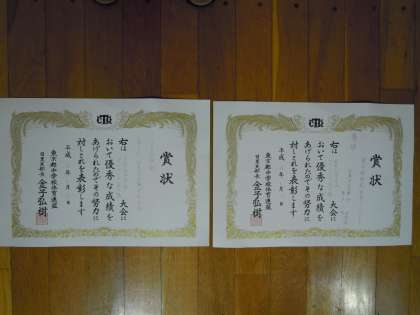 賞状
右は 大会に
おいて優秀な成績を
あげられたのでその努力に
対しこれを表彰します
平成 年 月 日
東京都中学校体育連盟
金子弘樹
賞状
右は 大会に
おいて優秀な成績を
あげられたのでその努力に
対しこれを表彰します
平成 年 月 日
東京都中学校体育連盟
金子弘樹